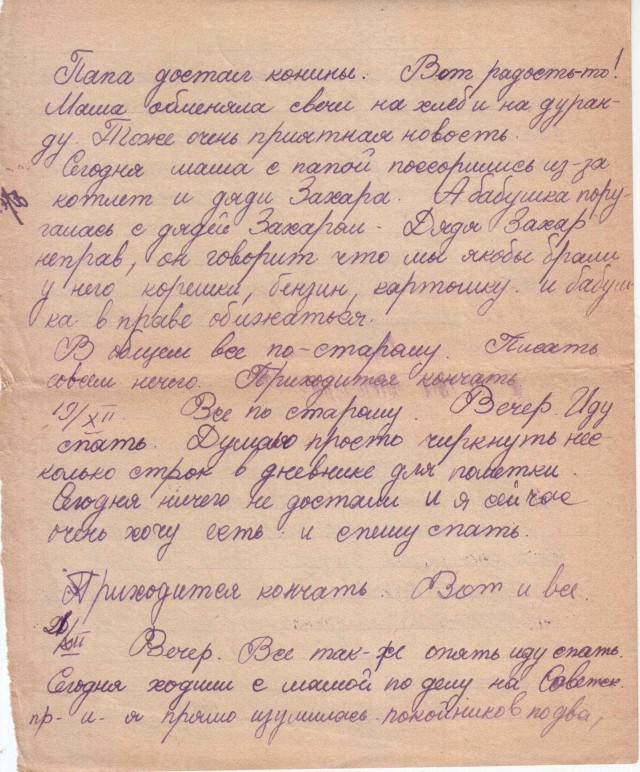 Папа достал конины. Вот радость-то!
Мама обменяла свечи на хлеб и на дуран-
ду. Тоже очень приятная новость.
Сегодня мама с папой поссорились из-за
котлет и дяди Захара. А бабушка пору-
галась с дядей Захаром. Дядя Захар
неправ, он говорит что мы якобы брали
у него корешки, бензин, картошку. и бабуш-
ка в праве обижаться.
В общем все по-старому. Писать
совсем нечего. Приходится кончать
19/XII. Все по старому. Вечер. Иду
спать. Думаю просто чиркнуть нес-
колько строк в дневнике для пометки.
Сегодня ничего не достали и я сейчас
очень хочу есть и спешу спать.
Приходится кончать. Вот и все.
XII Вечер. Все так-же опять иду спать.
Сегодня ходили с мамой по делу на Советск.
пр- и- я прямо изумилась. покойников по два,